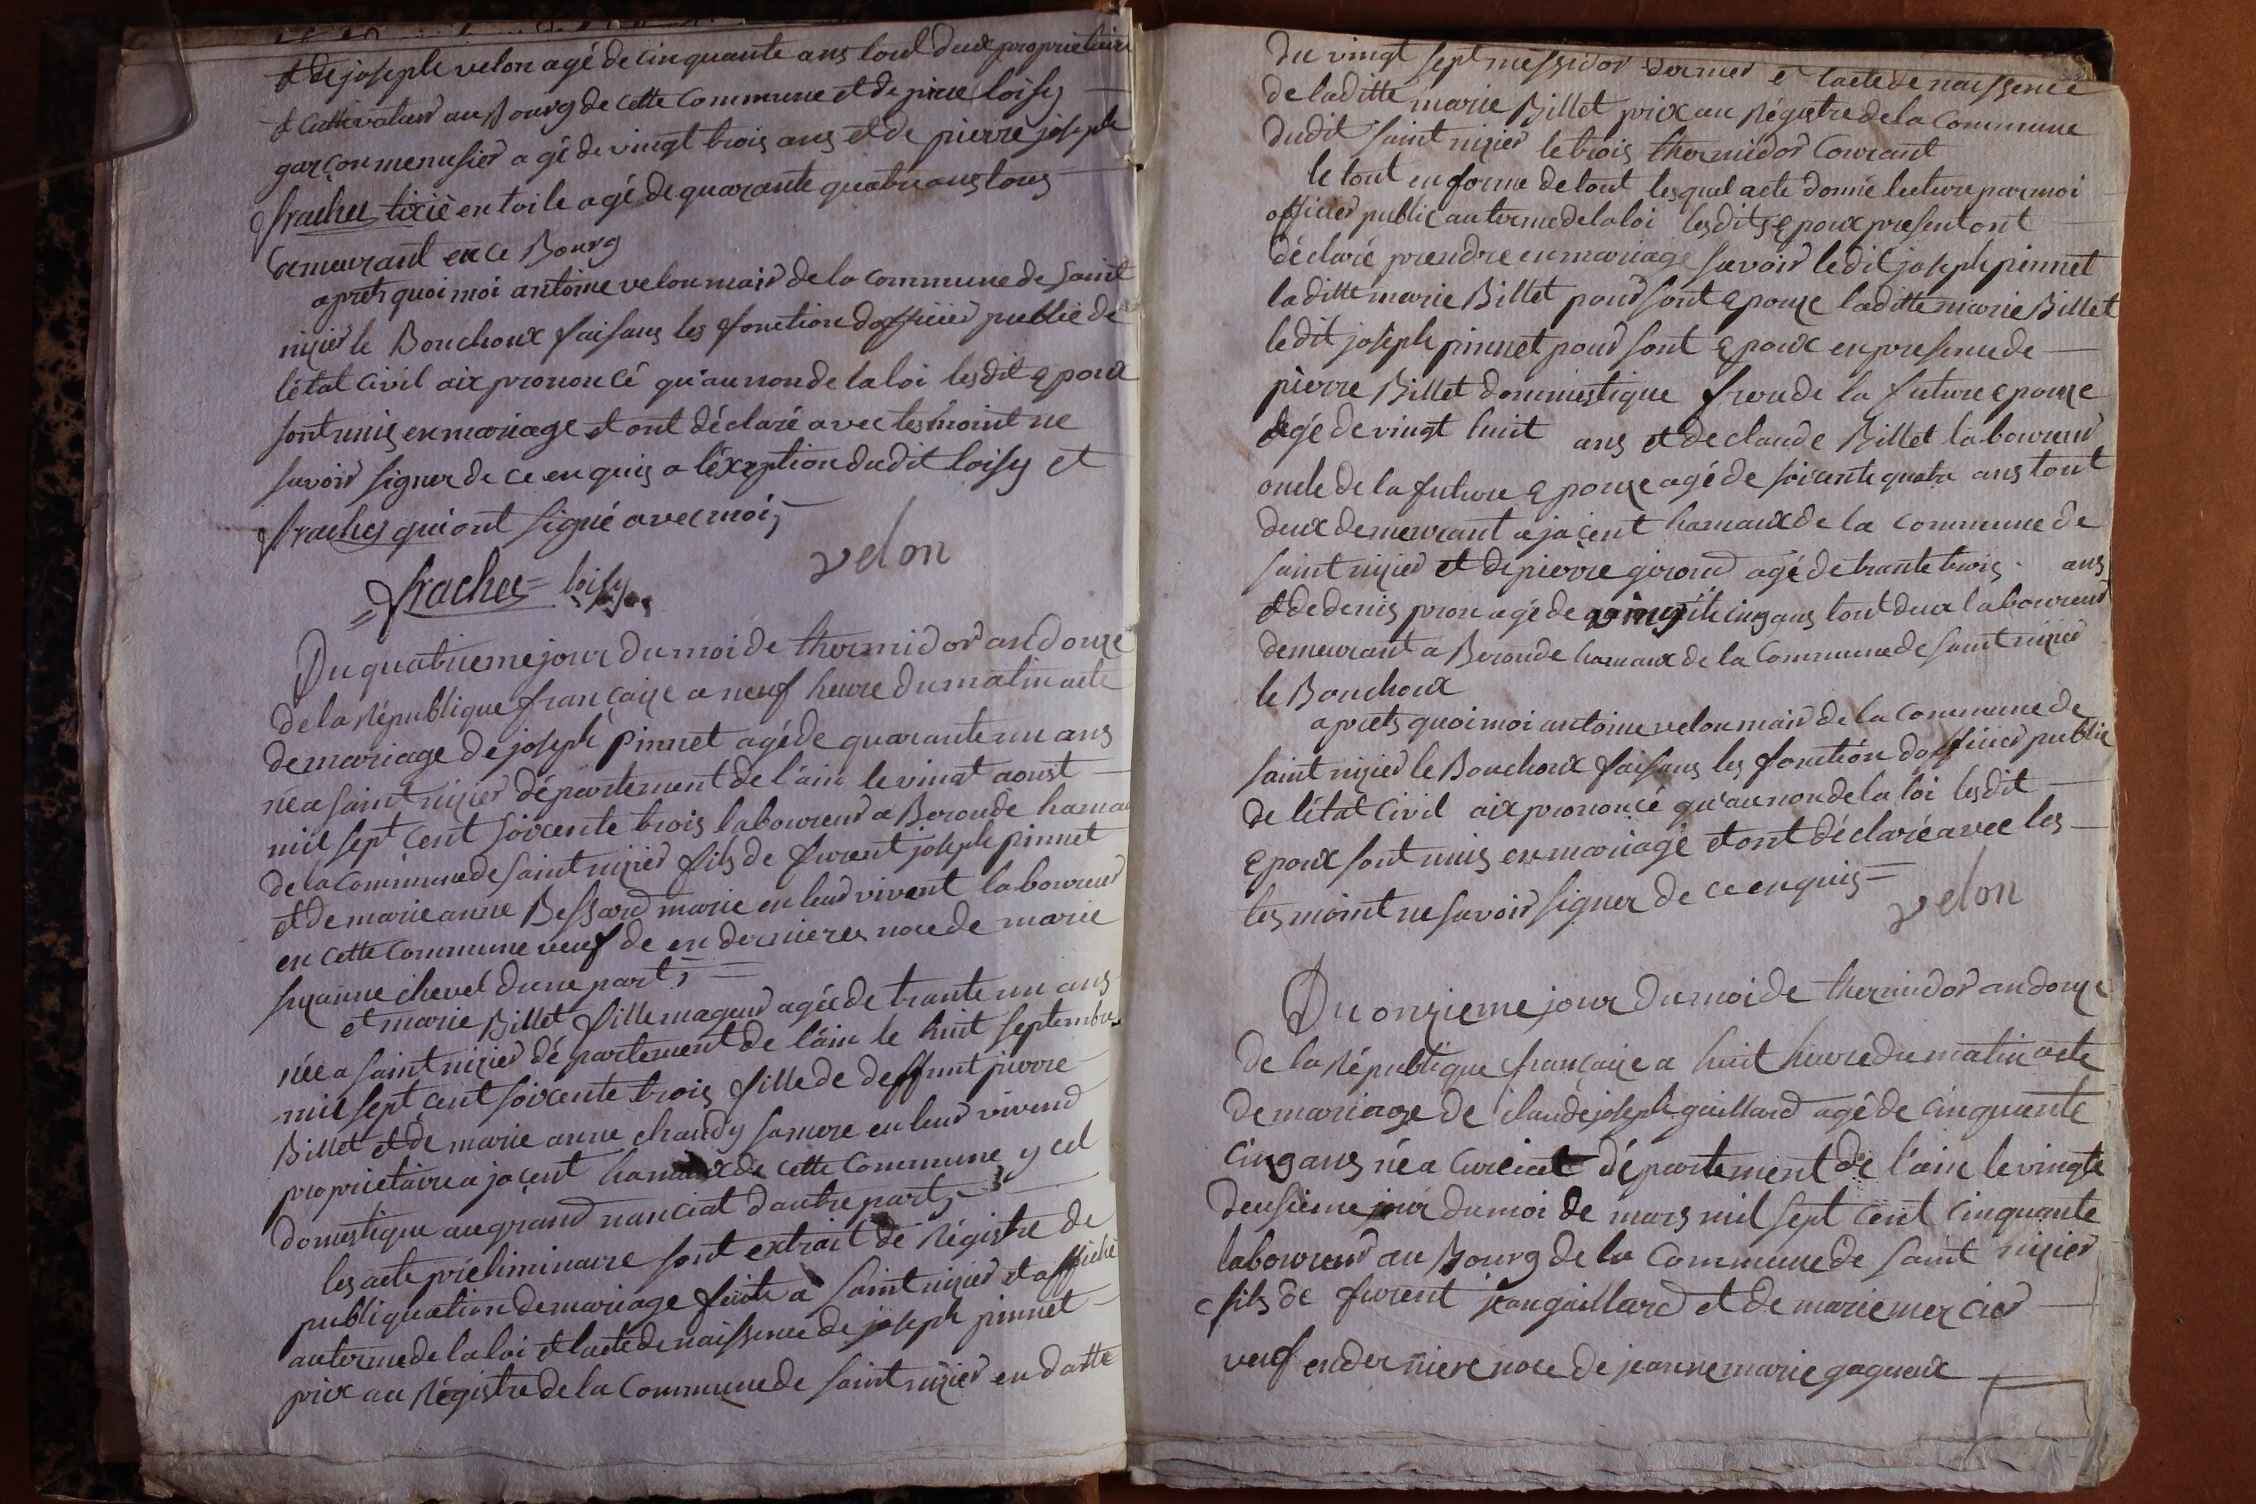 et de joseph velon agé de cinquante ans tout deux proprietaire
et cultivateur au Bourg de cette commune et de pierre loisy
garçon menusier agé de vingt trois ans et de pierre joseph
frachet tixié en toile agé de quarante quatre ans tous
demeurant en ce Bourg
aprets quoi moi antoine velon maire de la commune de saint
nizier le Bouchoux faisans les fonction dofficier public de
létat civil aix prononcé qu'au non de la loi lesdit epoux
sont unis en mariage et ont déclaré avec tesmoint ne
savoir signer de ce enquis a léxeption dudit loisy et
frachet qui ont signé avec moi
velon
frachet loisy
Du quatrieme jour du moi de thermidor an douze
de la République française a neuf heure du matin acte
de mariage de joseph pinnet agé de quarante un ans
né a saint nizier département de l'ain le vingt aoust
mil sept cent soixente trois laboureur a Beronde hamau
de la commune de saint nizier fils de furent joseph pinnet
et de marie anne Bessard marie en leur vivent laboureur
en cette commune veuf de en dernieres noce de marie
suzanne chevel dune part
et marie Billet fille mageur agée de trante un ans
née a saint nizier département de l'ain le huit septembre
mil sept cent soixente trois fille de deffunt pierre
Billet et de marie anne chandy sa mere en leur vivend
proprietaire a jaçent hamaux de cette commune y cel
domestique au grand nanciat dautre part
les acte préliminaire sont extrait de Régistre de
publiquation de mariage faite a saint nizier et affiché
au terme de la loi et lacte de naissence de joseph pinnet
prix au Régistre de la commune de saint nizier en datte
du vingt sept messidor dernier et lacte de naissence
de laditte marie Billet prix au Régistre de la commune
dudit saint nizier le trois thermidor courant
le tout en forme de tout lesquel acte donné lecture par moi
officier public au terme de la loi lesdits epoux present ont
déclaré prendre en mariage savoir ledit joseph pinnet
laditte marie Billet pour sont epouze laditte marie Billet
ledit joseph pinnet pour sont epoux en presence de
pierre Billet dommestique frere de la future epouze
agé de vingt huit ans et de claude Billet laboureur
oncle de la future epouze agé de soixente quatre ans tout
deux demeurant a jaçent hamaux de la commune de
saint nizier et de pierre giroud agé de trante trois ans
et de denis pron agé de cinq ans tout deux laboureur
demeurant a Beronde hamaux de la commune de saint nizier
le Bouchoux
aprets quoi moi antoine velon maire de la commune de
saint nizier le Bouchoux faisans les fonction dofficier public
de létat civil aix prononcé qu'au non de la loi lesdit
epoux sont unis en mariage et ont déclaré avec les
tesmoint ne savoir signer de ce enquis
velon
Du onzieme jour du moi de thermidor an douze
de la République française a huit heure du matin acte
de mariage de claude joseph gaillard agé de cinquante
cinq ans né a curciat département de l'ain le vingte
deusieme jour du moi de mars mil sept cent cinquante
laboureur au Bourg de la commune de saint nizier
fils de furent jean gaillard et de marie mercier
veuf en derniere noce de jeanne marie gagneux